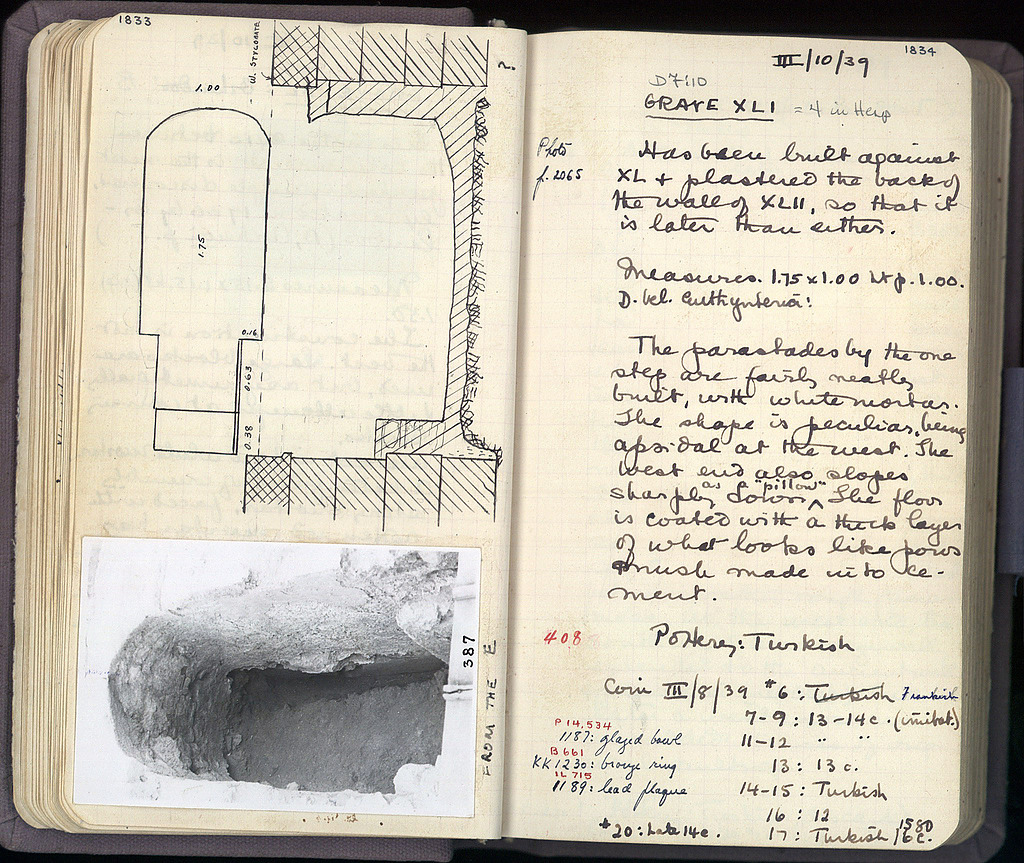 1833
W. STYLOBATE
?
1.00
1.75
0.16
0.63
0.38
387
FROM THE E
1834
III/10/39
D7110
GRAVE XLI = 4 in Hesp
Photo
f. 2065
Has been built against
XL + plastered the back of
the wall of XLII, so that it
is later than either.
Measures. 1.75 x 1.00 1.00.
D. bel. Euthynteria:
The parastades by the one
step are fairly neatly
built, with white mortar.
The shape is peculiar, being
apsidal at the west. The
west end also slopes
sharply down as a "pillow". The floor
is coated with a thick layer
of what looks like poros
mush made into ce-
ment.
408
Pottery: Turkish
Coin III/8/39 #6: Turkish Frankish
7-9: 13-14c. (imitat.)
P 14,534
1187: glazed bowl
11-12 " "
B 661
KK 1230: bronze ring
13: 13c.
IL 715
1189: lead plaque
14-15: Turkish
16: 12
#20: Late 14c.
17: Turkish 16c.
1580